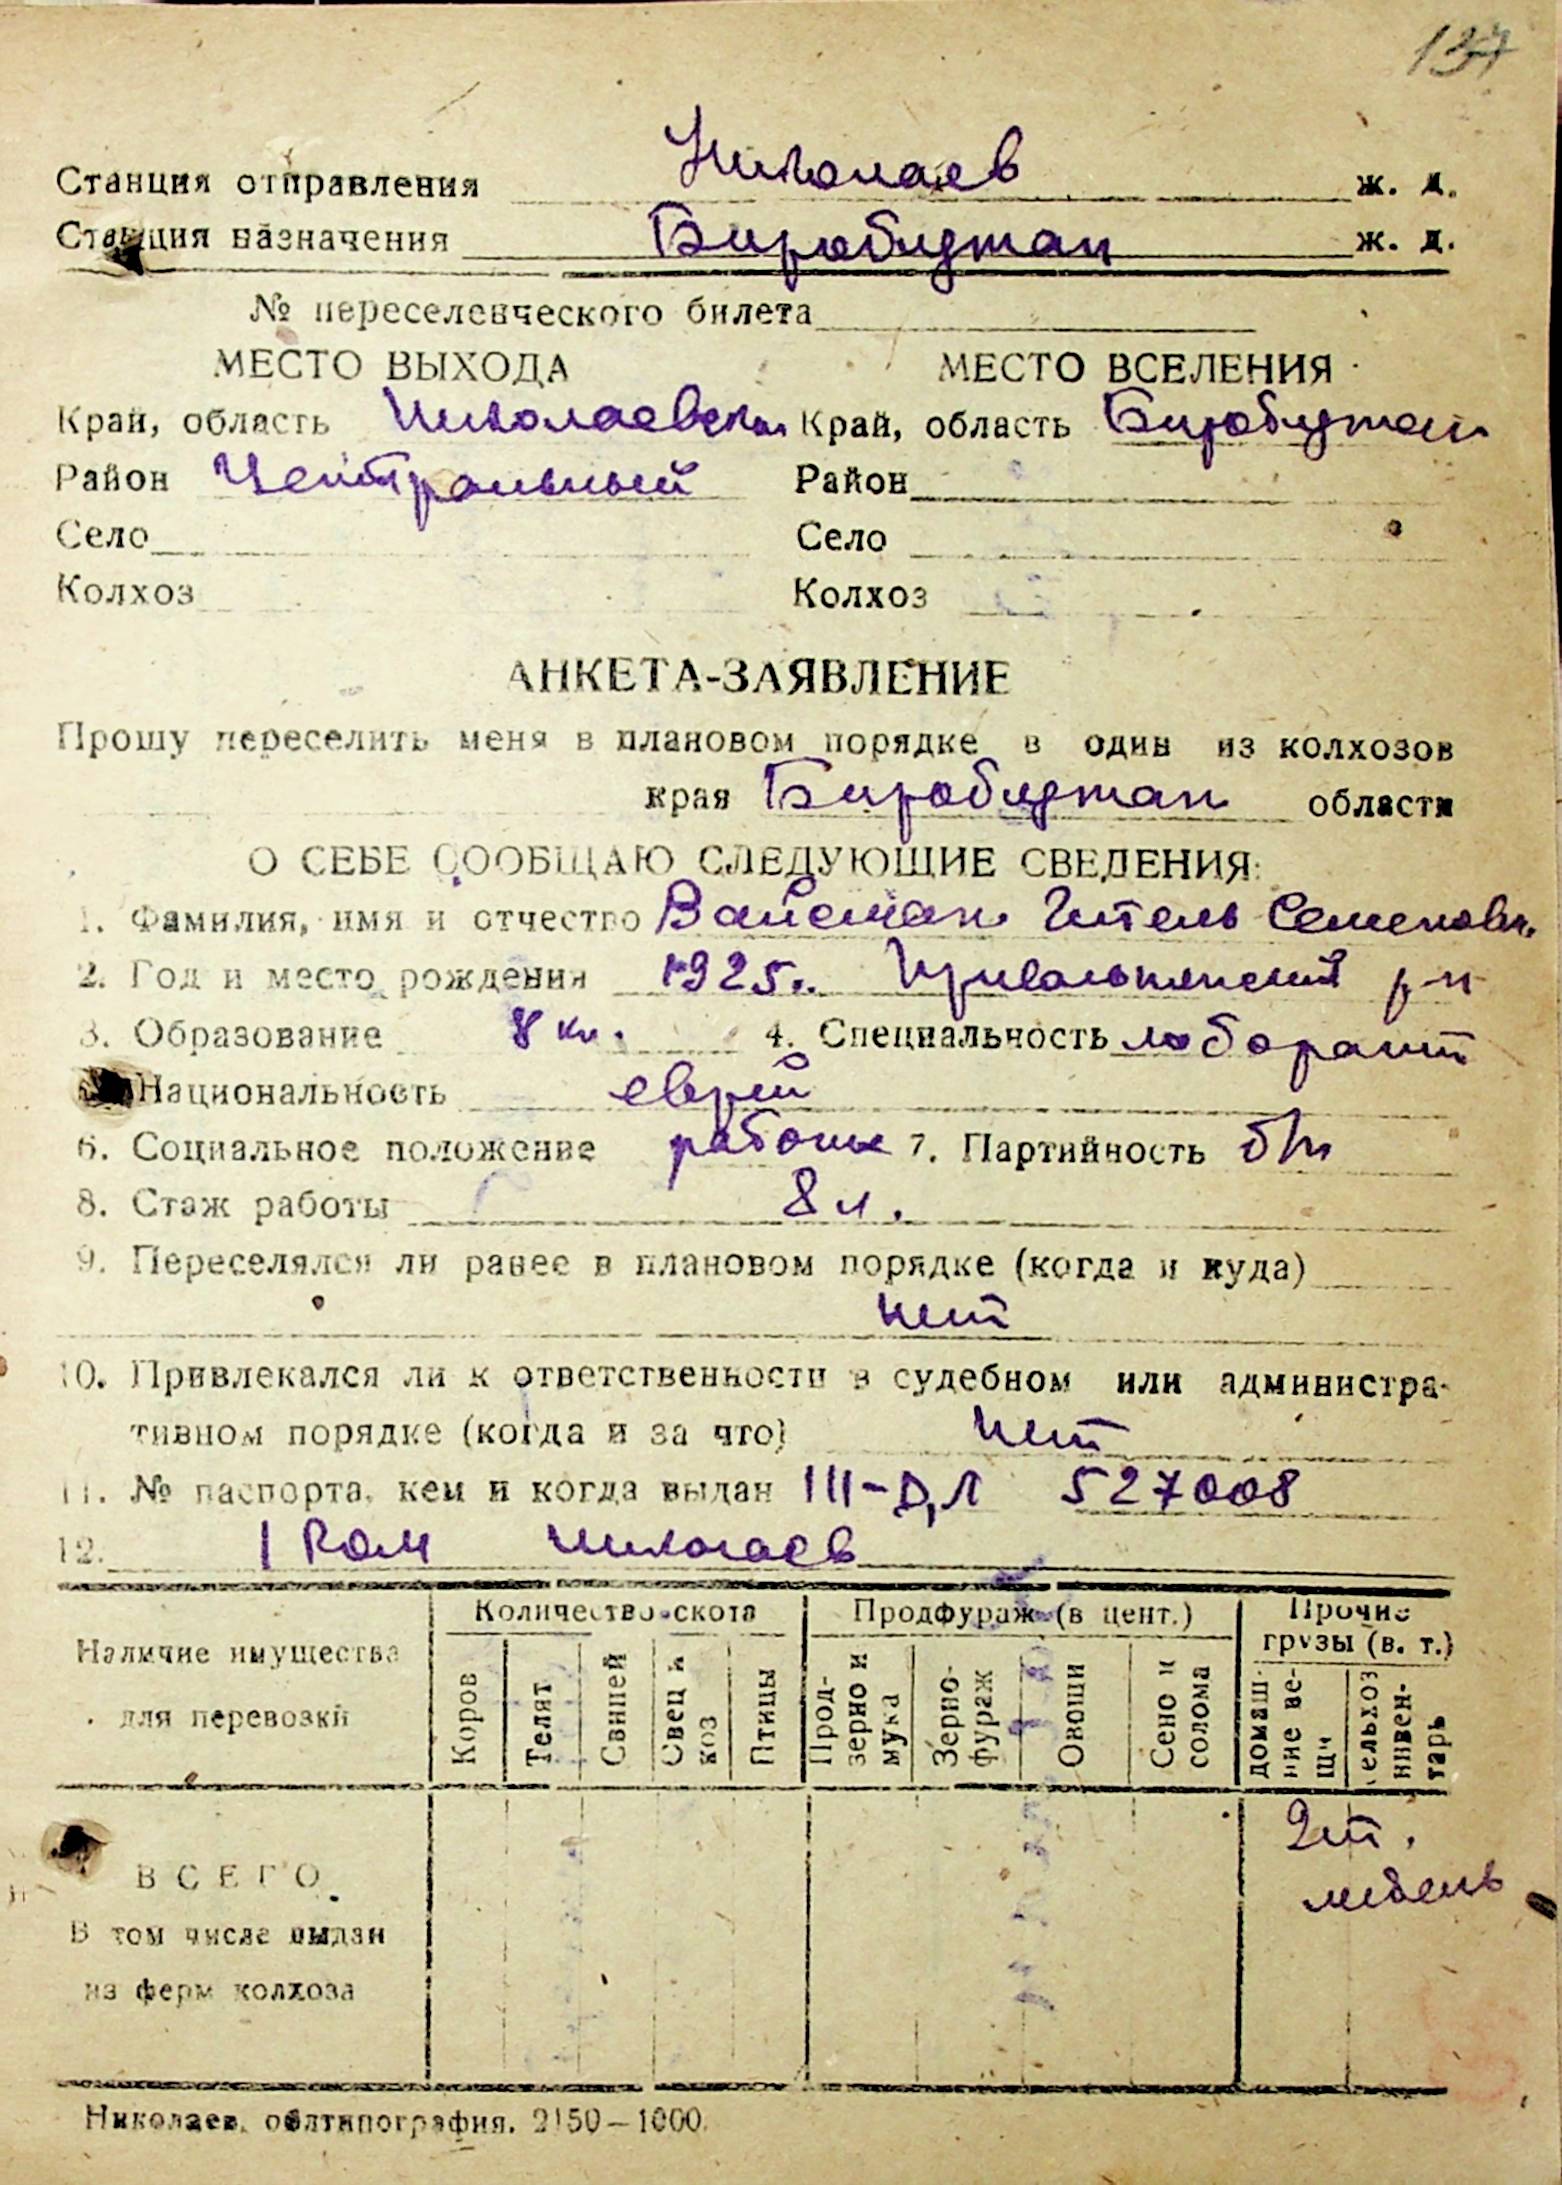 137
Станция отправления Николаев ж. д.
Станция назначения Биробиджан ж. д.
№ переселенческого билета
МЕСТО ВЫХОДА МЕСТО ВСЕЛЕНИЯ
Край, область Николаевская Край, область Биробиджан
Район Центральный Район
Село Село
Колхоз Колхоз
АНКЕТА-ЗАЯВЛЕНИЕ
Прошу переселить меня в плановом порядке в один из колхозов
края Биробиджан области
О СЕБЕ СООБЩАЮ СЛЕДУЮЩИЕ СВЕДЕНИЯ:
1. Фамилия, имя и отчество Вайсман Гитель Семеновн.
2. Год и место рождения 1925. р-н
3. Образование 8 кл. 4. Специальность лаборант
Национальность еврей
6. Социальное положение рабочие 7. Партийность б/п
8. Стаж работы 8 л.
9. Переселялся ли ранее в плановом порядке (когда и куда)
нет
10. Привлекался ли к ответственности в судебном или администра-
тивном порядке (когда и за что) нет
11. № паспорта, кем и когда выдан III-Д,Л 527008
12. I ГОМ Николаев
Наличие имущества для перевозки
Количество скота
Продфураж (в цент.)
Прочие грузы (в. т.)
Коров
Телят
Свиней
Овец и коз
Птицы
Прод-зерно и мука
Зерно-фураж
Овощи
Сено и солома
домаш-ние ве-щи
сельхоз инвен-тарь
2 т.
мебель
ВСЕГО
В том числе выдан
из ферм колхоза
Николаев, облтипография. 2150—1000.